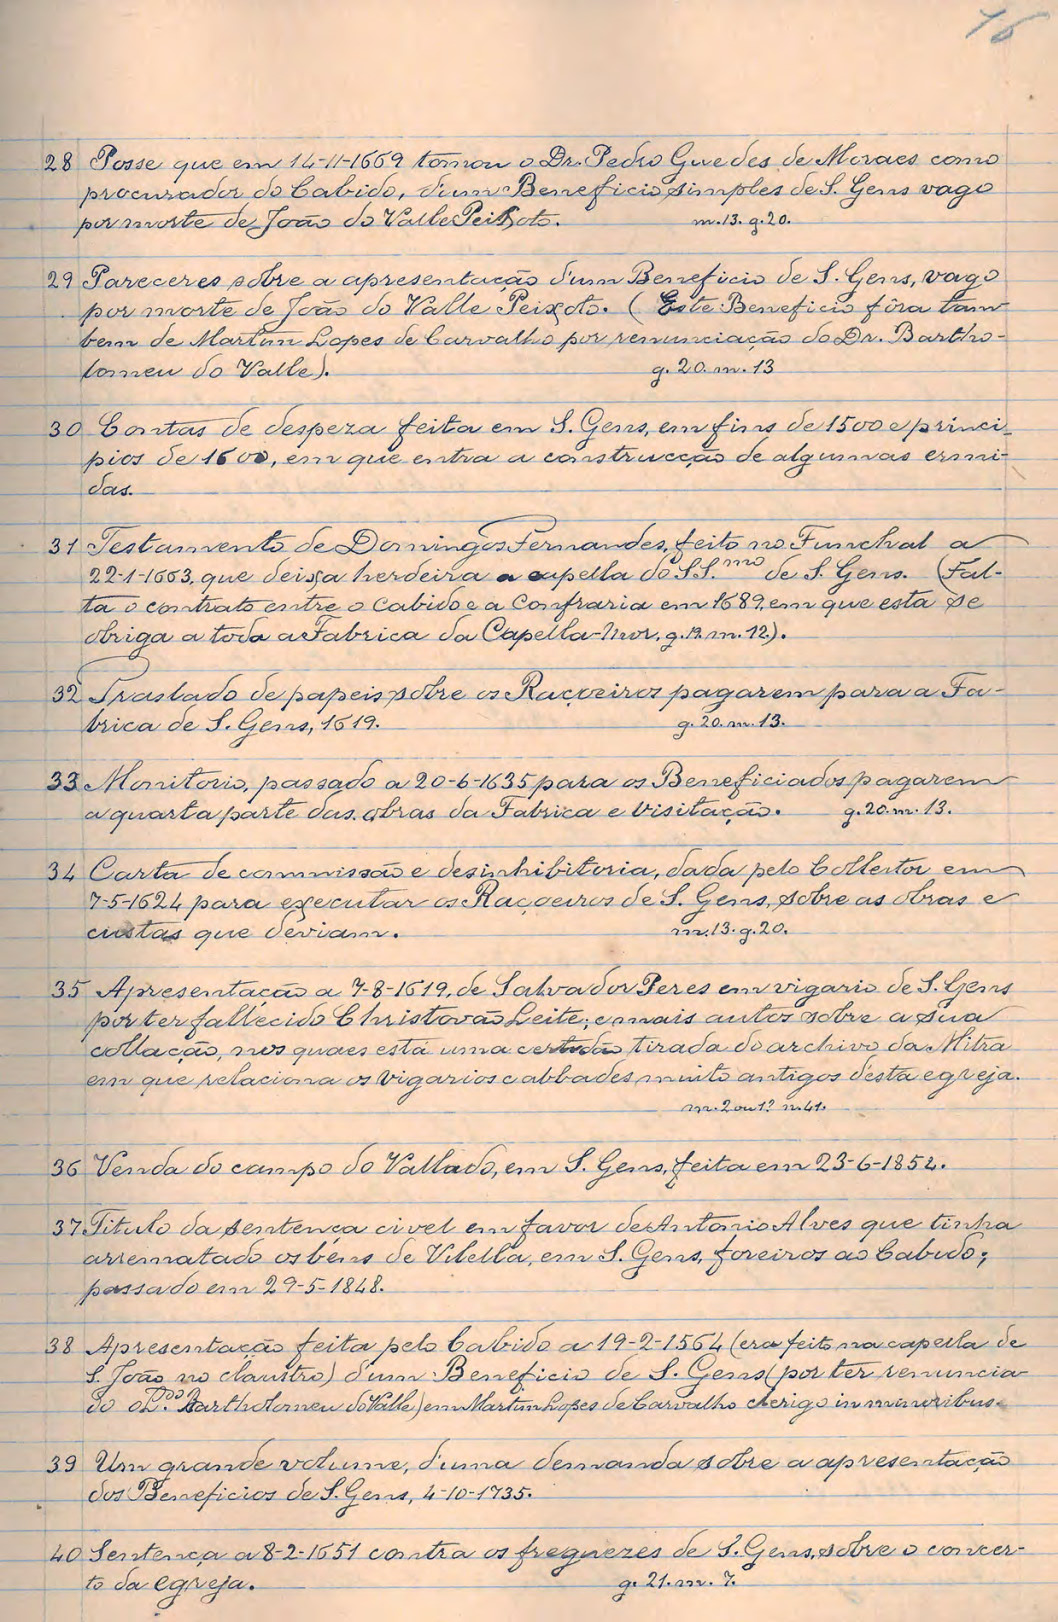 16
28 Posse que em 14-11-1669 tomou o Dr. Pedro Guedes de Moraes como
procurador do Cabido, d'um Beneficio simples de S. Gens vago
por morte de João do Valle Peixoto. m. 13. g. 20.
29 Pareceres sobre a apresentação d'um Beneficio de S. Gens, vago
por morte de João do Valle Peixoto. (Este Beneficio fôra tam
bem de Martim Lopes de Carvalho por renunciação do Dr. Bartho-
lomeu do Valle). g. 20. m. 13
30 Contas de despeza feita em S. Gens, em fins de 1500 e princi-
pios de 1600, em que entra a construcção de algumas ermi-
das.
31 Testamento de Domingos Fernandes, feito no Funchal a
22-1-1663, que deixa herdeira a capella do SS.mo de S. Gens. (Fal-
ta o contrato entre o Cabido e a Confraria em 1689, em que esta se
obriga a toda a Fabrica da Capella-Mor, g. 19. m. 12.).
32 Traslado de papeis sobre os Raçoeiros pagarem para a Fa-
brica de S. Gens, 1619. g. 20. m. 13.
33 Monitorio, passado a 20-6-1635 para os Beneficiados pagarem
a quarta parte das obras da Fabrica e Visitação. g. 20. m. 13.
34 Carta de commissão e desinhibitoria, dada pelo Colleitor em
7-5-1624 para executar os Raçoeiros de S. Gens, sobre as obras e
custas que deviam. m. 13. g. 20.
35 Apresentação a 7-8-1619, de Salvador Peres em vigario de S. Gens
por ter fallecido Christovão Leite; e mais autos sobre a sua
collação, nos quaes está uma certidão tirada do archivo da Mitra
em que relaciona os vigarios e abbades muito antigos desta egreja.
m. 2 ou 1? n. 41.
36 Venda do campo do Vallado, em S. Gens, feita em 23-6-1852.
37 Titulo da sentença civel em favor de Antonio Alves que tinha
arrematado os béns de Vilella, em S. Gens, foreiros ao Cabido;
passado em 29-5-1848.
38 Apresentação feita pelo Cabido a 19-2-1564 (era feito na capella de
S. João no claustro) d'um Beneficio de S. Gens (por ter renuncia-
do o L.do Bartholomeu do Valle) em Martim Lopes de Carvalho clerigo in minoribus.
39 Um grande volume, d'uma demanda sobre a apresentação
dos Beneficios de S. Gens, 4-10-1735.
40 Sentença a 8-2-1651 contra os freguezes de S. Gens, sobre o concer-
to da egreja. g. 21. m. 7.